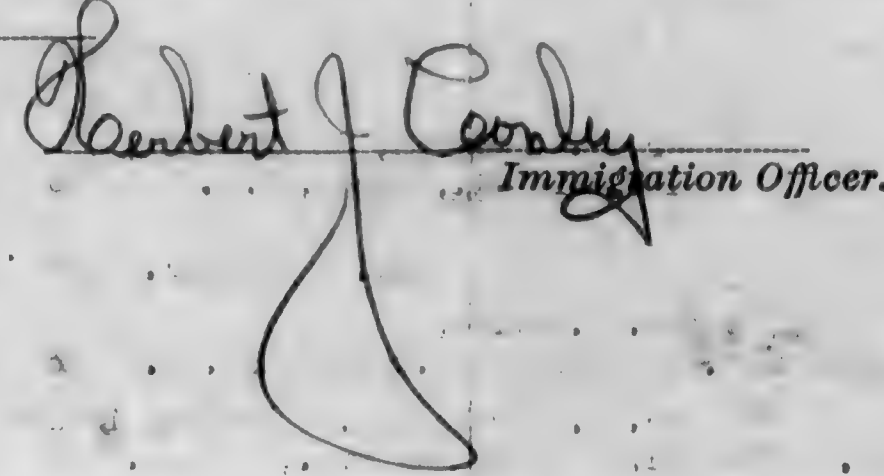 Herbert J Conly
Immigration Officer.